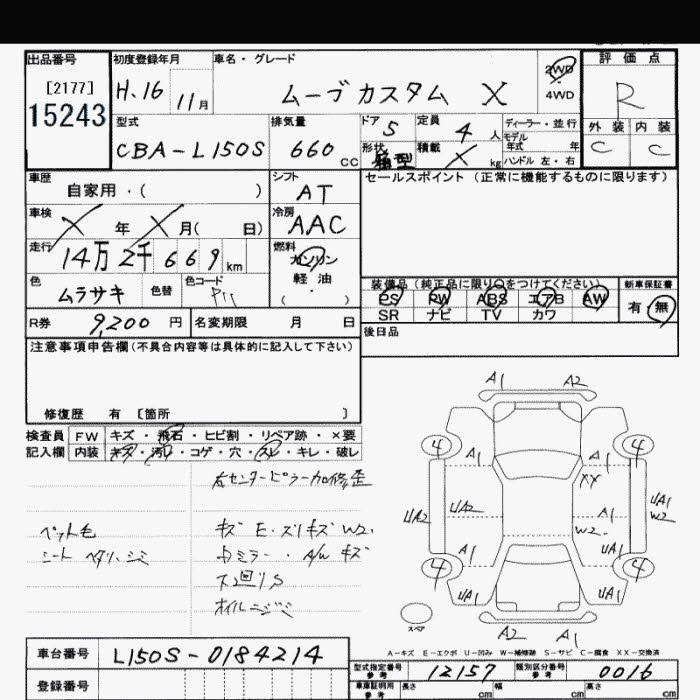 出品番号 初度登録年月 車名・グレード 2WD 4WD 評価点
[2177] 15243 H.16 11月 ムーブカスタム X R
外装 内装 C C
型式 排気量 ドア 定員 ディーラー・並行
CBA-L150S 660 CC 5 4人 モデル年式 年
形状 箱型 積載 X kg ハンドル 左・右
車歴 シフト セールスポイント(正常に機能するものに限ります)
自家用・( ) AT
車検 X年 X月( 日) 冷房 AAC
走行 14万2千669km 燃料 ガソリン
軽油
( ・ )
色 ムラサキ 色替 色コード
装備品(純正品に限り○をつけてください) 新車保証書
PS PW ABS エアB AW 有・無
SR ナビ TV カワ
R券 9,200円 名変期限 月 日 後日品
注意事項申告欄(不具合内容等は具体的に記入して下さい)
修復歴 有 [箇所 ]
検査員 FW キズ・飛石・ヒビ割・リペア跡・×要
記入欄 内装 キズ・汚れ・コゲ・穴・スレ・キレ・破レ
右センターピラー加修歪
ペット毛 キズ E・スリキズ W2.
シート ヘタリ、シミ
ミラー・A/W キズ
下廻りS
オイルニジミ
A1 A2
4 4
XX
UA2 UA2 A1 UA1
W2
W2.
A1 UA1
4 4
UA1 UA1
スペア A2 A1
A-キズ E-エクボ U-凹み W-補修跡 S-サビ C-腐食 XX-交換済
車台番号 L150S-0184214
型式指定番号 参考 12157 類別区分番号 参考 0016
登録番号
車庫証明用 参考 長さ cm 幅 cm 高さ cm